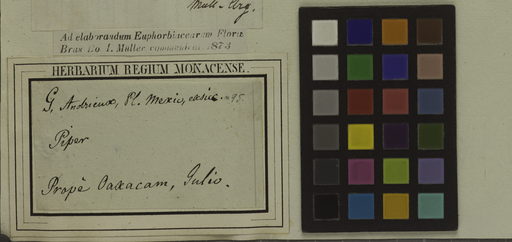 Müll-Arg.
Ad elaborandum Euphorbiacearum Florae
Bras. Do. I. Müller commodat. 1873
HERBARIUM REGIUM MONACENSE.
G. Andrieux, Pl. Mexic. exsicc. n 95.
Piper
Propè Oaxacam, Julio.